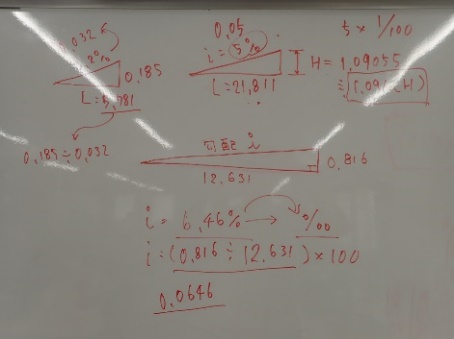 0.032
3.2%
0.185
L=5.781
0.185÷0.032
0.05
i=5%
L=21.811
5×1/100
H=1.09055
≒1.09(=H)
勾配 i
12.631
0.816
i=6.46%→%
i=(0.816÷12.631)×100
0.0646